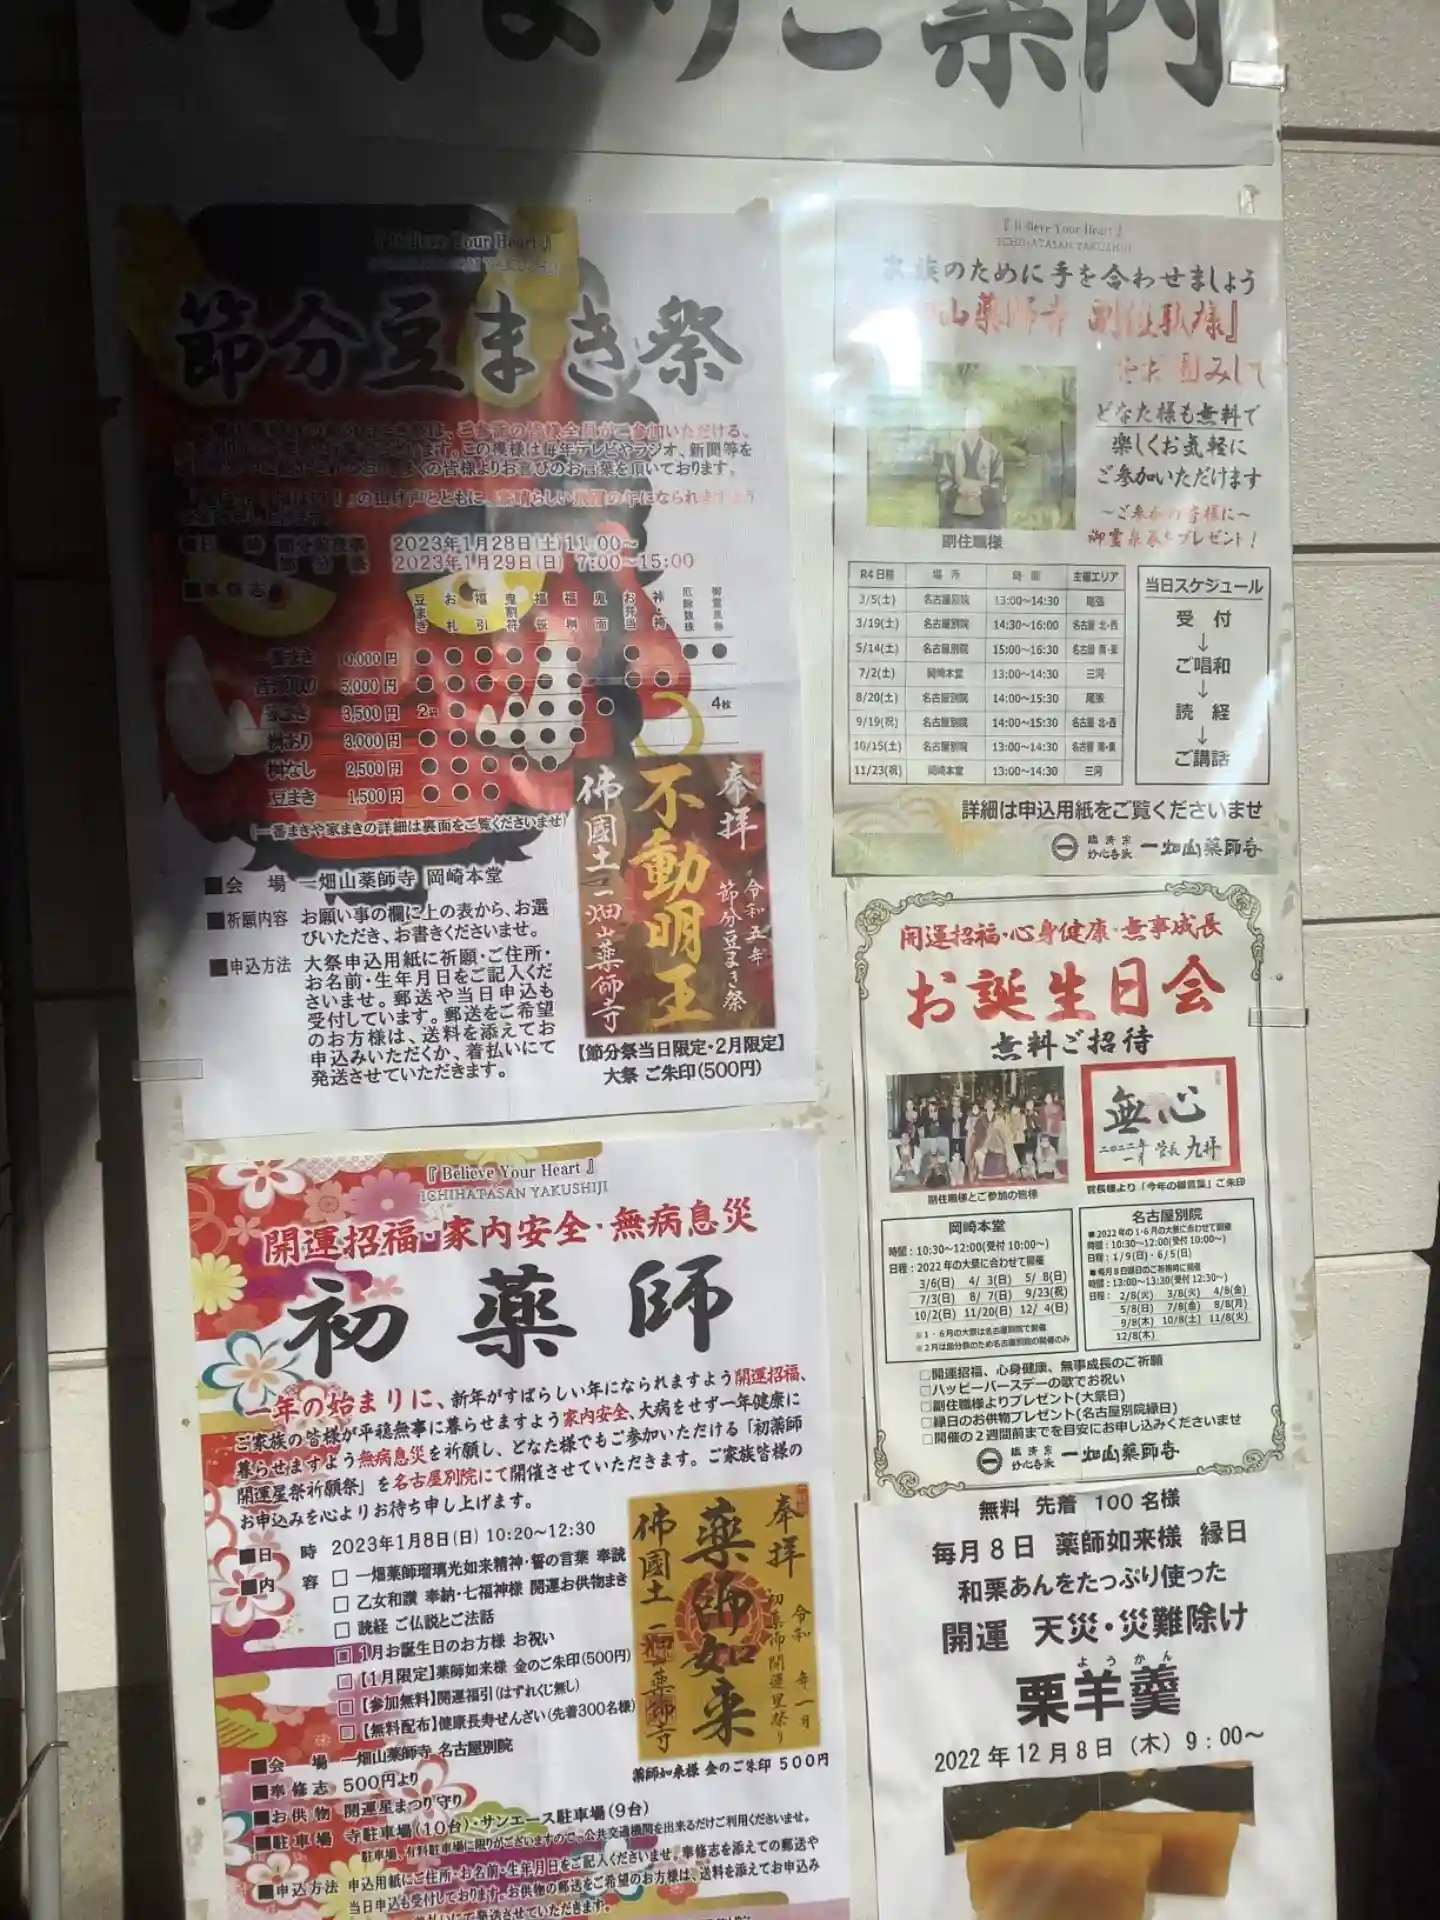 お寺よりご案内
『Believe Your Heart』
ICHIHATASAN YAKUSHIJI
節分豆まき祭
ご参加の皆様全員がご参加いただける、
この模様は毎年テレビやラジオ、新聞等を
の皆様よりお喜びのお言葉を頂いております。
の掛け声とともに、素晴らしい飛躍の年になられますよう
2023年1月28日(土)11:00～
節分祭 2023年1月29日(日) 7:00～15:00
■奉修志
豆まき お札 福引 鬼割符 福笹 福桝 鬼面 お弁当 厄除数珠
一番まき 10,000円 ● ● ● ● ● ● ● ● ●
5,000円
3,500円 4枚
桝あり 3,000円 ● ● ● ● ● ●
桝なし 2,500円 ● ● ● ● ●
豆まき 1,500円 ● ● ●
(一番まきや家まきの詳細は裏面をご覧くださいませ)
■会 場 一畑山薬師寺 岡崎本堂
■祈願内容 お願い事の欄に上の表から、お選
びいただき、お書きくださいませ。
■申込方法 大祭申込用紙に祈願・ご住所・
お名前・生年月日をご記入くだ
さいませ。郵送や当日申込も
受付しています。郵送をご希望
のお方様は、送料を添えてお
申込みいただくか、着払いにて
発送させていただきます。
奉拝
令和五年
節分豆まき祭
不動明王
佛國土 一畑山薬師寺
【節分祭当日限定・2月限定】
大祭 ご朱印(500円)
『Believe Your Heart』
ICHIHATASAN YAKUSHIJI
家族のために手を合わせましょう
山薬師寺 副住職様』
どなた様も無料で
楽しくお気軽に
ご参加いただけます
～ご参加の皆様に～
プレゼント!
副住職様
R4日程 場所 時間 主催エリア
3/5(土) 名古屋別院 13:00～14:30 尾張
3/19(土) 名古屋別院 14:30～16:00 名古屋 北・西
5/14(土) 名古屋別院 15:00～16:30 名古屋 南・東
7/2(土) 岡崎本堂 13:00～14:30 三河
8/20(土) 名古屋別院 14:00～15:30 尾張
9/19(祝) 名古屋別院 14:00～15:30 名古屋 北・西
10/15(土) 名古屋別院 13:00～14:30 名古屋 南・東
11/23(祝) 岡崎本堂 13:00～14:30 三河
当日スケジュール
受 付
↓
ご唱和
↓
読 経
↓
ご講話
詳細は申込用紙をご覧くださいませ
臨済宗
妙心寺派 一畑山薬師寺
開運招福・心身健康・無事成長
お誕生日会
無料ご招待
副住職様とご参加の皆様
無心
二〇二二年
一月 管長 九拝
管長様より「今年の御言葉」ご朱印
岡崎本堂
時間:10:30～12:00(受付 10:00～)
日程:2022年の大祭に合わせて開催
3/6(日) 4/ 3(日) 5/ 8(日)
7/3(日) 8/ 7(日) 9/23(祝)
10/2(日) 11/20(日) 12/ 4(日)
※1・6月の大祭は名古屋別院で開催
※2月は節分祭のため名古屋別院の開催のみ
名古屋別院
●2022年の1・6月の大祭に合わせて開催
時間:10:30～12:00(受付 10:00～)
日程:1/9(日)・6/5(日)
●毎月8日縁日のご祈祷時に開催
時間:13:00～13:30(受付 12:30～)
日程: 2/8(火) 3/8(火) 4/8(金)
5/8(日) 7/8(金) 8/8(月)
9/8(木) 10/8(土) 11/8(火)
12/8(木)
□開運招福、心身健康、無事成長のご祈願
□ハッピーバースデーの歌でお祝い
□副住職様よりプレゼント(大祭日)
□縁日のお供物プレゼント(名古屋別院縁日)
□開催の2週間前までを目安にお申し込みくださいませ
臨済宗
妙心寺派 一畑山薬師寺
『Believe Your Heart』
ICHIHATASAN YAKUSHIJI
開運招福・家内安全・無病息災
初薬師
一年の始まりに、新年がすばらしい年になられますよう開運招福、
ご家族の皆様が平穏無事に暮らせますよう家内安全、大病をせず一年健康に
暮らせますよう無病息災を祈願し、どなた様でもご参加いただける「初薬師
開運星祭祈願祭」を名古屋別院にて開催させていただきます。ご家族皆様の
お申込みを心よりお待ち申し上げます。
■日 時 2023年1月8日(日) 10:20～12:30
■内 容 □ 一畑薬師瑠璃光如来精神・誓の言葉 奉読
□ 乙女和讃 奉納・七福神様 開運お供物まき
□ 読経 ご仏説とご法話
□ 1月お誕生日のお方様 お祝い
□ 【1月限定】薬師如来様 金のご朱印(500円)
□ 【参加無料】開運福引(はずれくじ無し)
□ 【無料配布】健康長寿ぜんざい(先着300名様)
■会 場 一畑山薬師寺 名古屋別院
■奉修志 500円より
■お供物 開運星まつり守り
■駐車場 寺駐車場(10台)・サンエース駐車場(9台)
駐車場、有料駐車場に限りがございますので、公共交通機関を出来るだけご利用くださいませ。
■申込方法 申込用紙にご住所・お名前・生年月日をご記入くださいませ。奉修志を添えての郵送や
当日申込も受付しております。お供物の郵送をご希望のお方様は、送料を添えてお申込み
払いにて発送させていただきます。
奉拝
令和 年一月
初薬師開運星祭り
薬師如来
佛國土 一畑山薬師寺
薬師如来様 金のご朱印 500円
無料 先着 100名様
毎月8日 薬師如来様 縁日
和栗あんをたっぷり使った
開運 天災・災難除け
ようかん
栗羊羹
2022年12月8日(木)9:00～